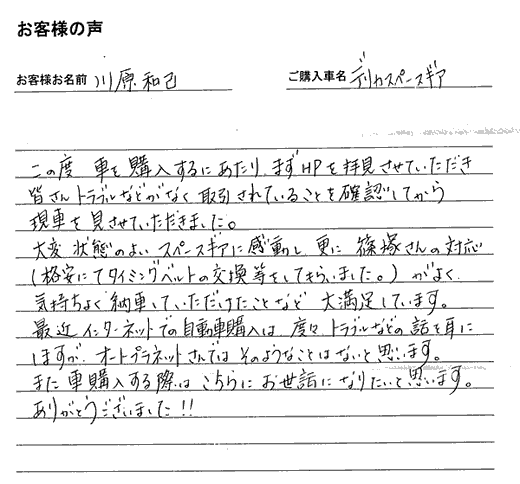 お客様の声
お客様お名前 川原和己 ご購入車名 デリカスペースギア
この度 車を購入するにあたり、まずHPを拝見させていただき
皆さんトラブルなどがなく取引されていることを確認してから
現車を見させていただきました。
大変状態のよいスペースギアに感動し、更に篠塚さんの対応
(格安にてタイミングベルトの交換等をしてもらいました。)がよく、
気持ちよく納車していただけたことなど大満足しています。
最近インターネットでの自動車購入は、度々トラブルなどの話を耳に
しますが、オートプラネットさんではそのようなことはないと思います。
また車購入する際はこちらにお世話になりたいと思います。
ありがとうございました!!